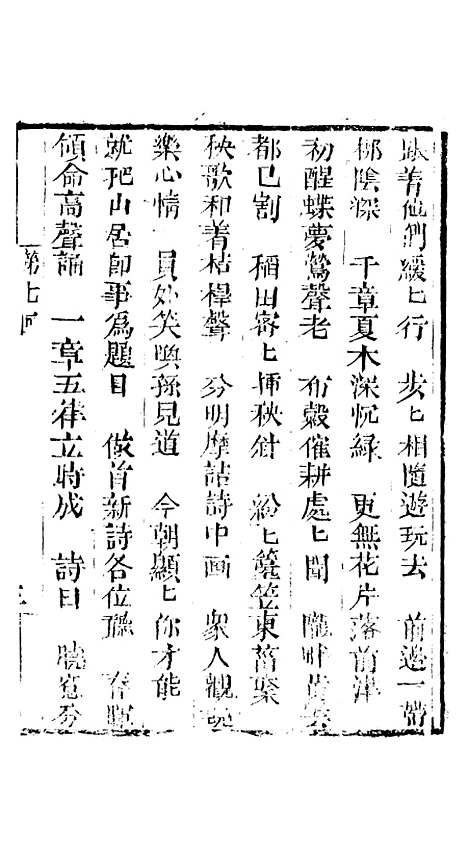 跟着他們緩匕行　步匕相隨遊玩去　前邊一帶
柳陰深　千章夏木深怳綠　更無花片落前津
初醒蝶夢鶯聲老　布穀催耕處匕聞　隴畔黃
都已割　稻田密匕挿秧針　紛匕簑笠東菑聚
秧歌和着桔槹聲　分明摩詰詩中画　衆人觀玩
樂心情　員外笑喚孫兒道　今朝顯匕你才能
就把山居即事爲題目　做首新詩各位聽　春暉
領命高聲誦　一章五律立時成　詩曰　曉寬分
第七囘